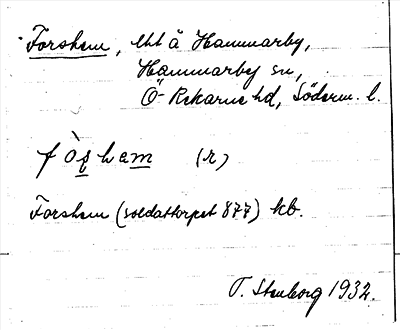 Forshem, lht å Hammarby,
Hammarby sn,
Ö Rekarne hd, Söderm. l.
fòs̱ham (r)
Forshem (soldattorpet 877) kb.
T. Stenborg 1932.